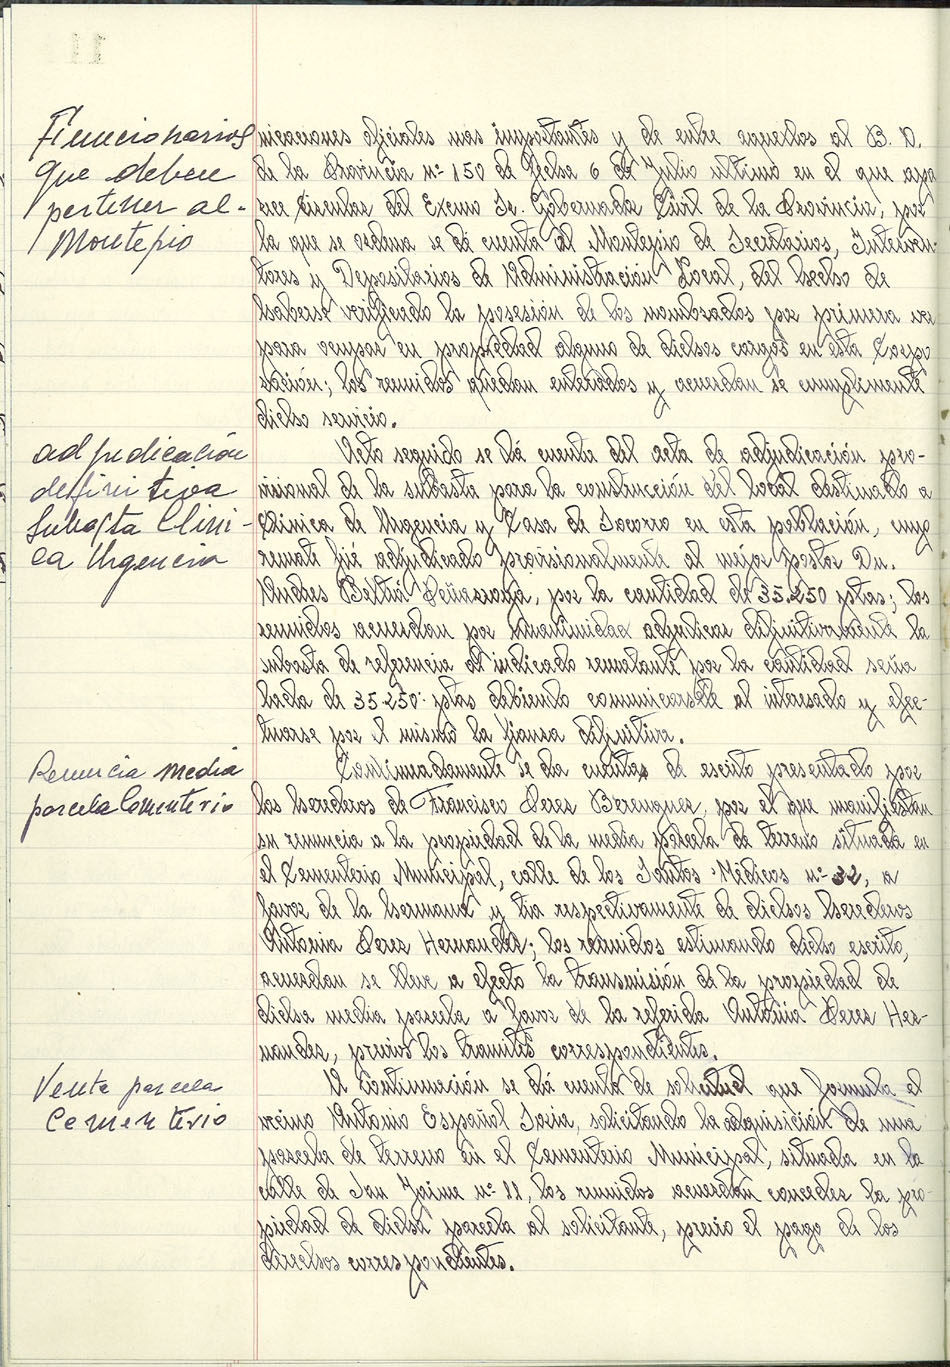 Funcionarios
que deben
pertener al-
Montepio
nicaciones oficiales mas importantes y de entre aquellos al B. O.
de la Provincia nº 150 de fecha 6 de Julio ultimo en el que apa
rece circular del Excmo Sr. Gobernador Civil de la Provincia, por
la que se ordena se dé cuenta al Montepio de Secretarios, Interven-
tores y Depositarios de Administración Local, del hecho de
haberse verificado la posesión de los nombrados por primera vez
para ocupar en propiedad alguno de dichos cargos en esta Corpo
ración; los reunidos quedan enterados y acuerdan se cumplimente
dicho servicio.
adjudicación
definitiva
Subasta Clini-
ca Urgencia
Acto seguido se dá cuenta del acta de adjudicación pro-
visional de la subasta para la construcción del local destinado a
Clinica de Urgencia y Casa de Socorro en esta población, cuyo
remate fué adjudicado provisionalmente al mejor postor Dn.
Andres Beltrá Peñaranda, por la cantidad de 35.250 ptas; los
reunidos acuerdan por unanimidad adjudicar definitivamente la
subasta de referencia al indicado rematante por la cantidad seña
lada de 35.250 ptas debiendo comunicarsele al interesado y efec-
tuarse por el mismo la fianza definitiva.
Renuncia media
parcela Cementerio
Continuadamente se da cuenta de escrito presentado por
los herederos de Francisco Perez Berenguer, por el que manifiestan
su renuncia a la propiedad de la media parcela de terreno situada en
el Cementerio Municipal, calle de los Santos Médicos nº 32, a
favor de la hermana y tia respectivamente de dichos herederos
Antonia Perez Hernandez; los reunidos estimando dicho escrito,
acuerdan se lleve a efecto la transmisión de la propiedad de
dicha media parcela a favor de la referida Antonia Perez Her-
nandez, previos los tramites correspondientes.
Venta parcela
Cementerio
A Continuación se dá cuenta de solicitud que formula el
vecino Antonio Español Soria, solicitando la adquisición de una
parcela de terreno en el Cementerio Municipal, situada en la
calle de San Jaime nº 11, los reunidos acuerdan conceder la pro-
piedad de dicha parcela al solicitante, previo el pago de los
derechos correspondientes.